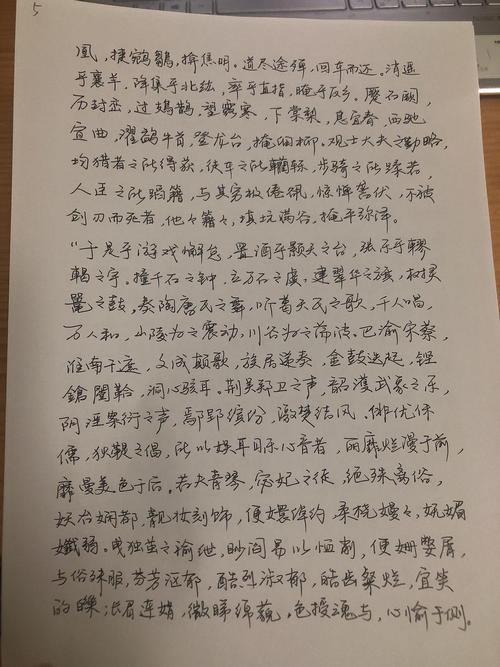 5
凰，捷鹓鶵，揜焦明。道尽途殚，回车而还。消遥
乎襄羊，降集乎北纮，率乎直指，晻乎反乡。蹷石阙，
历封峦，过鳷鹊，望露寒，下棠梨，息宜春，西驰
宣曲，濯鹢牛首，登龙台，掩细柳。观士大夫之勤略，
均猎者之所得获，徒车之所轥轹，步骑之所蹂若，
人臣之所蹈籍，与其穷极倦㑉，惊惮詟伏，不被
创刃而死者，他々籍々，填坑满谷，掩平弥泽。
“于是乎游戏懈怠，置酒乎颢天之台，张乐乎轇
轕之宇。撞千石之钟，立万石之虡，建翠华之旗，树灵
鼍之鼓，奏陶唐氏之舞，听葛天氏之歌，千人唱，
万人和，山陵为之震动，川谷为之荡波。巴渝宋蔡，
淮南干遮，文成颠歌，族居递奏，金鼓迭起，铿
鎗闛鞈，洞心骇耳。荆吴郑卫之声，韶濩武象之乐，
阴淫案衍之声，鄢郢缤纷，激楚结风。俳优侏
儒，狄鞮之倡，所以娱耳目乐心意者，丽靡烂漫于前，
靡曼美色于后。若夫青琴、宓妃之徒，绝殊离俗，
妖冶娴都，靓妆刻饰，便嬛绰约，柔桡嫚々，妩媚
孅弱。曳独茧之褕绁，眇阎易以恤削，便姗嫳屑，
与俗殊服，芬芳沤郁，酷烈淑郁，皓齿粲烂，宜笑
的皪；长眉连娟，微睇绵藐。色授魂与，心愉于侧。